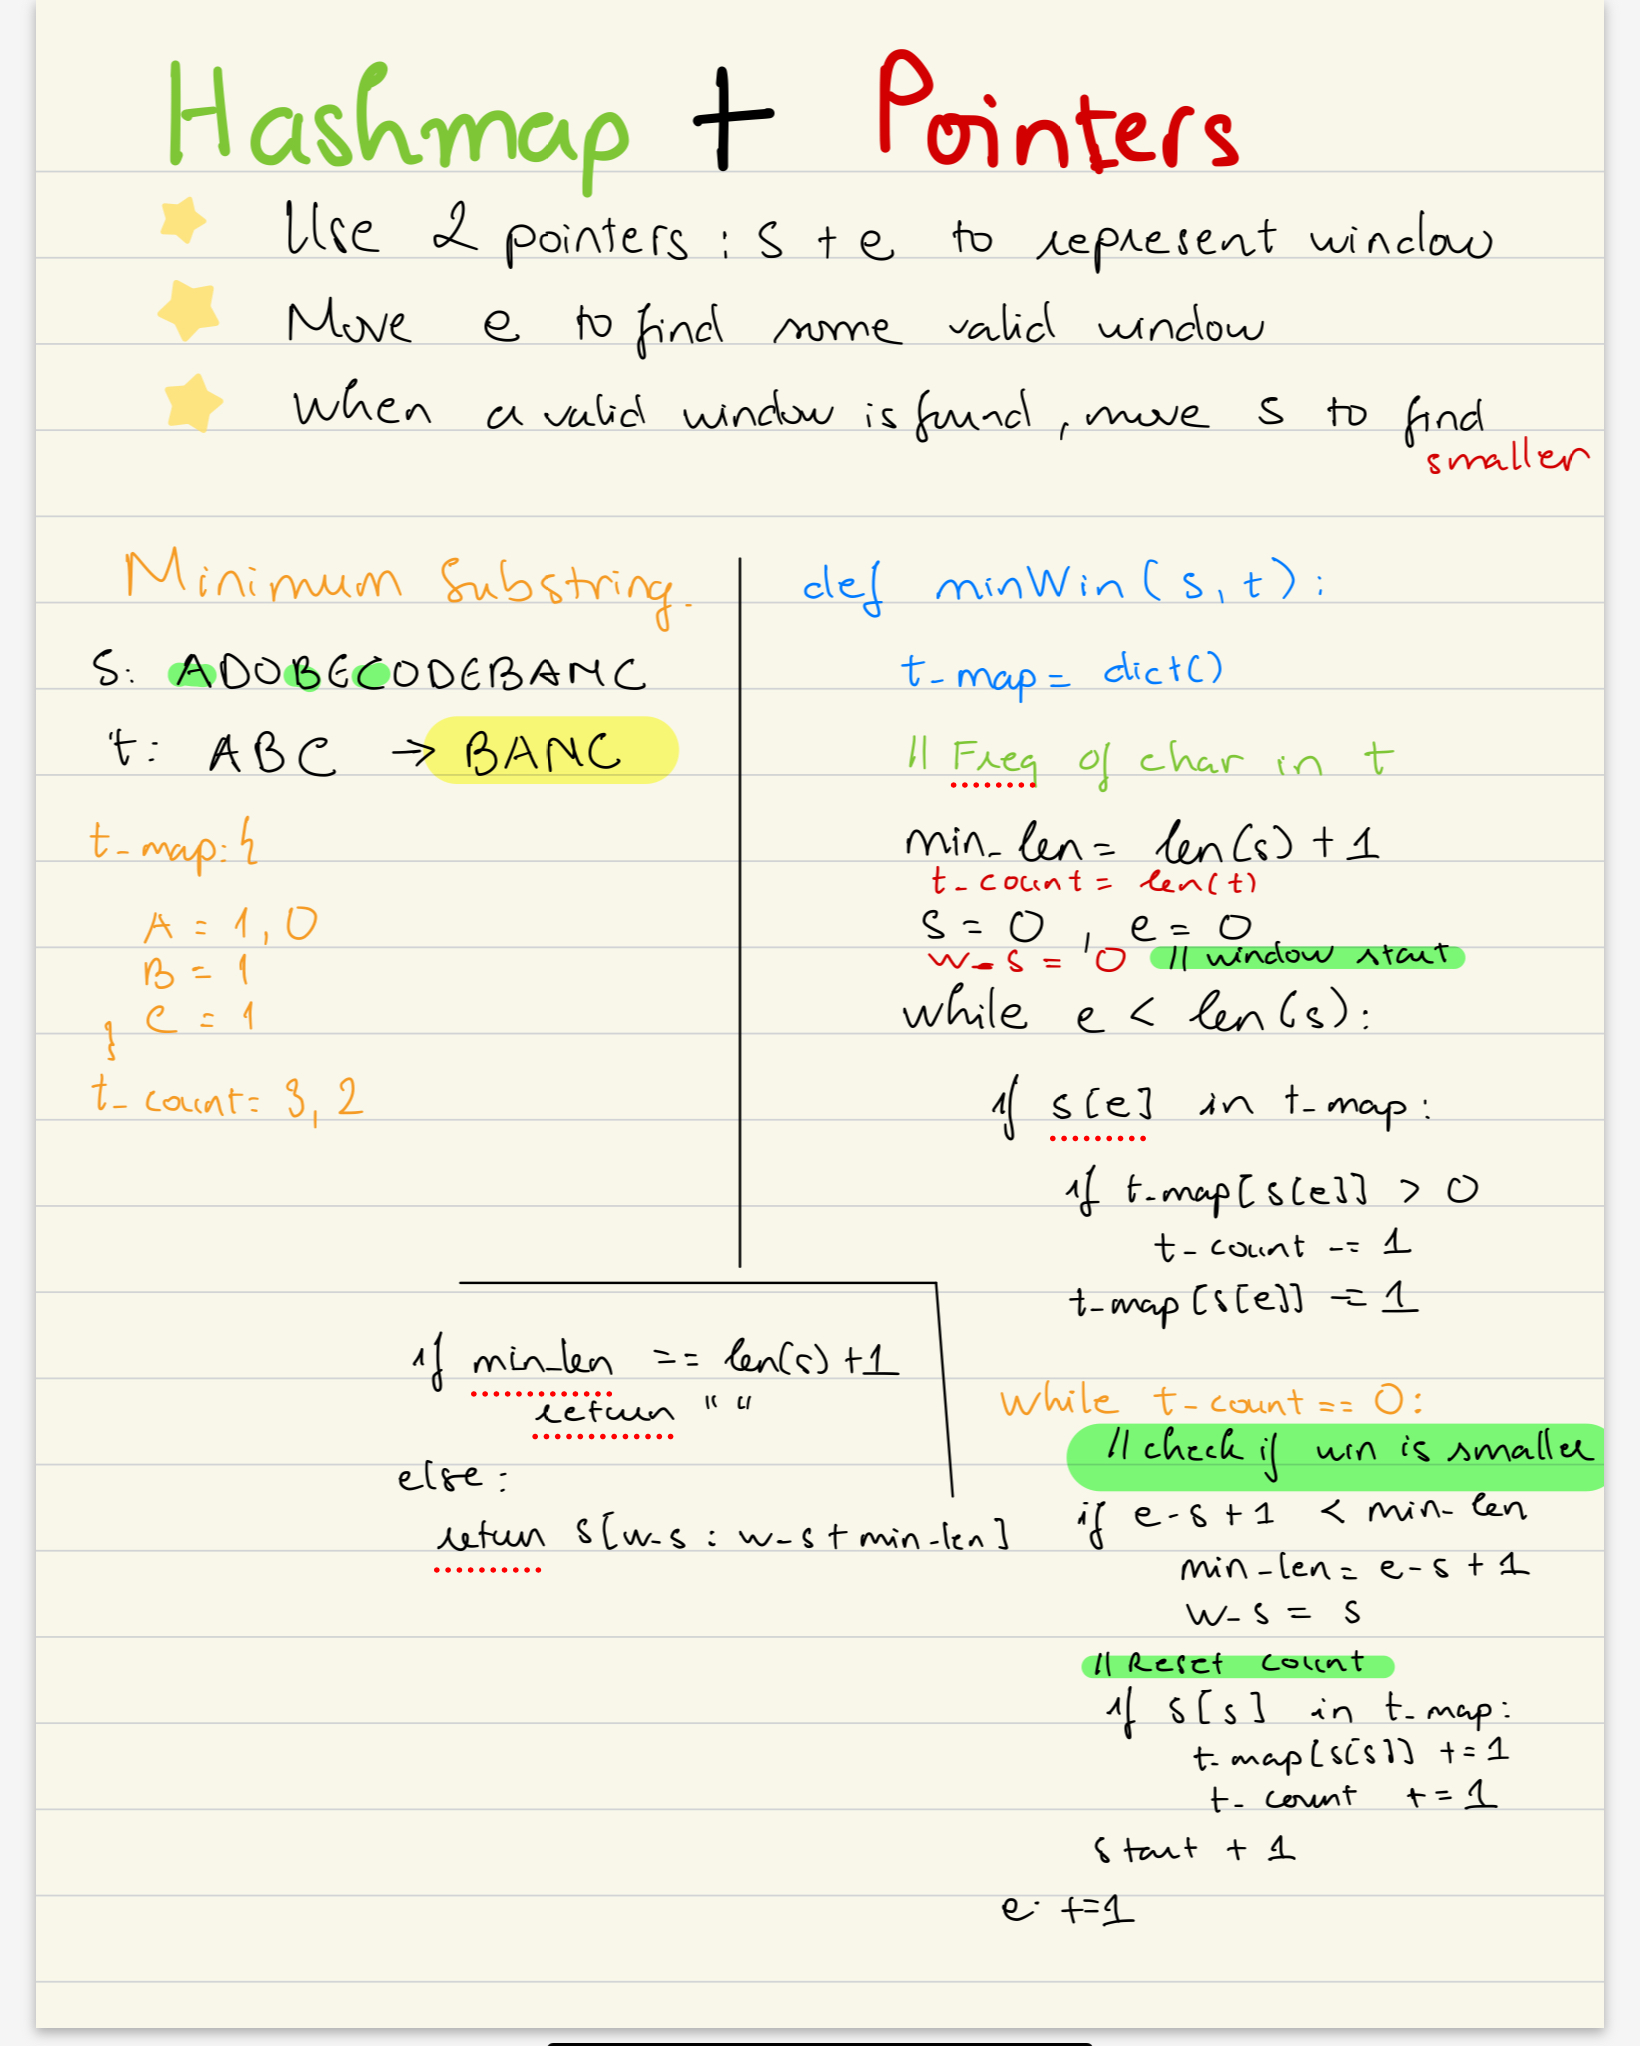 Hashmap + Pointers
Use 2 pointers : s + e to represent window
Move e to find some valid window
When a valid window is found, move s to find
smaller
Minimum Substring.
S: ADOBECODEBANC
t: ABC → BANC
t_map: {
A = 1, 0
B = 1
C = 1
}
t_count = 3, 2
def minWin(s, t):
t_map = dict()
// Freq of char in t
min_len = len(s) + 1
t_count = len(t)
s = 0 , e = 0
w_s = 0 // window start
while e < len(s):
if s[e] in t_map:
if t_map[s[e]] > 0
t_count -= 1
t_map[s[e]] -= 1
while t_count == 0:
// check if win is smaller
if e-s+1 < min_len
min_len = e-s+1
w_s = s
// Reset count
if s[s] in t_map:
t_map[s[s]] += 1
t_count += 1
start + 1
e += 1
if min_len == len(s)+1
return " "
else:
return s[w_s : w_s + min_len]